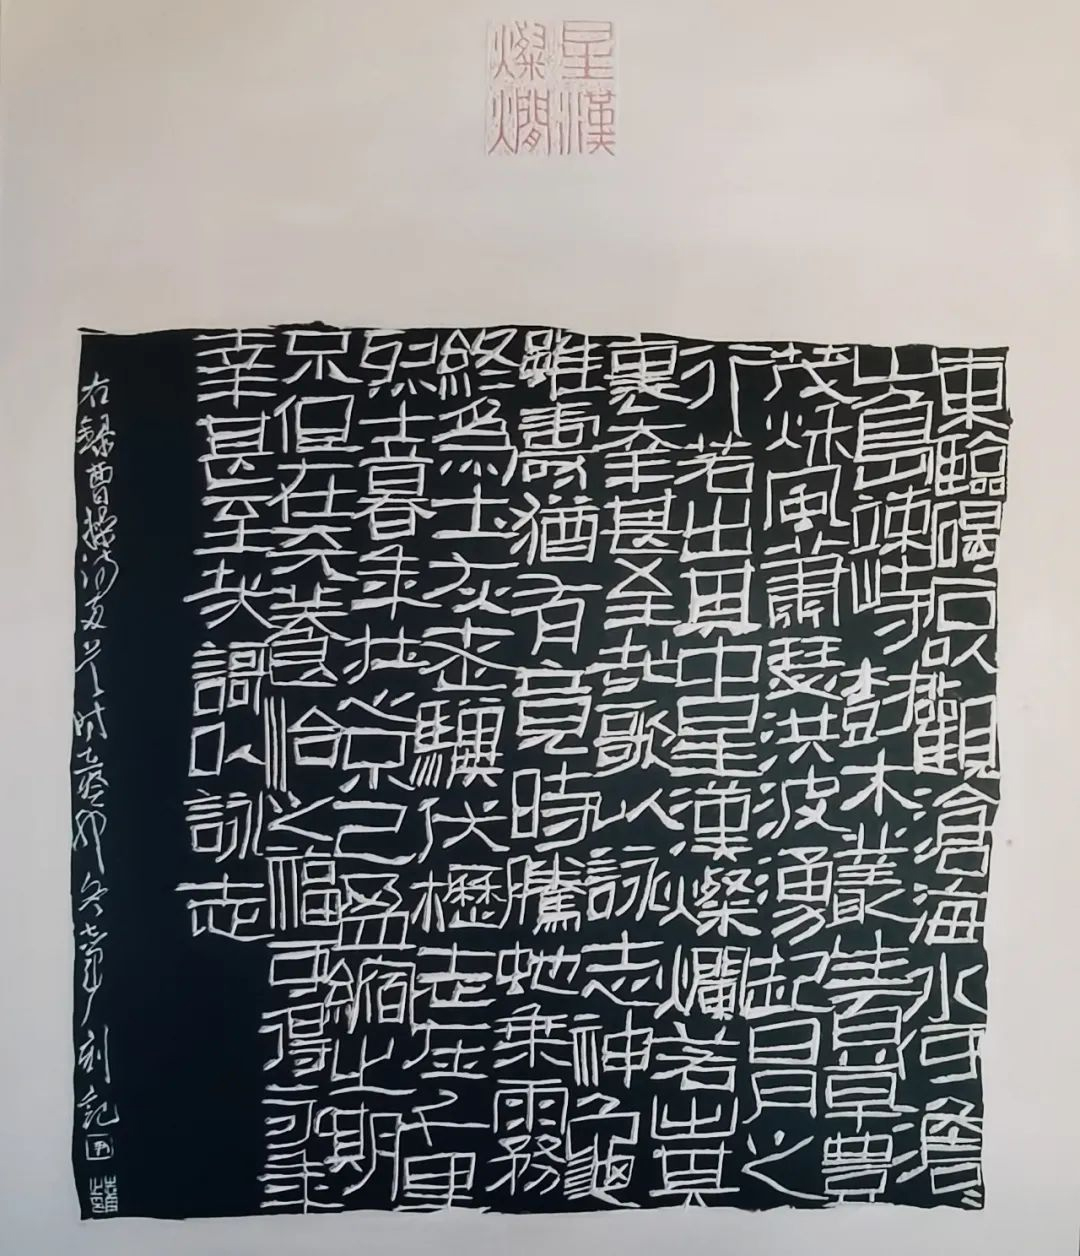 星漢
燦爛
東臨碣石以觀滄海水何澹〻
山島竦峙樹木叢生百草豐
茂秋風蕭瑟洪波湧起日月之
行若出其中星漢燦爛若出其
裏幸甚至哉歌以詠志神龜
雖壽猶有竟時騰蛇乘霧
終爲土灰老驥伏櫪志在千里
烈士暮年壯心不已盈縮之期
不但在天養怡之福可得永年
幸甚至哉謌以詠志
右錄曹操詩 時在癸卯冬 刻記